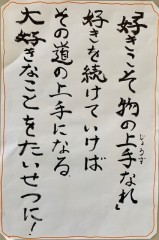 「好きこそ物の上手なれ」
じょうず
好きを続けていけば
その道の上手になる
大好きなことをたいせつに!